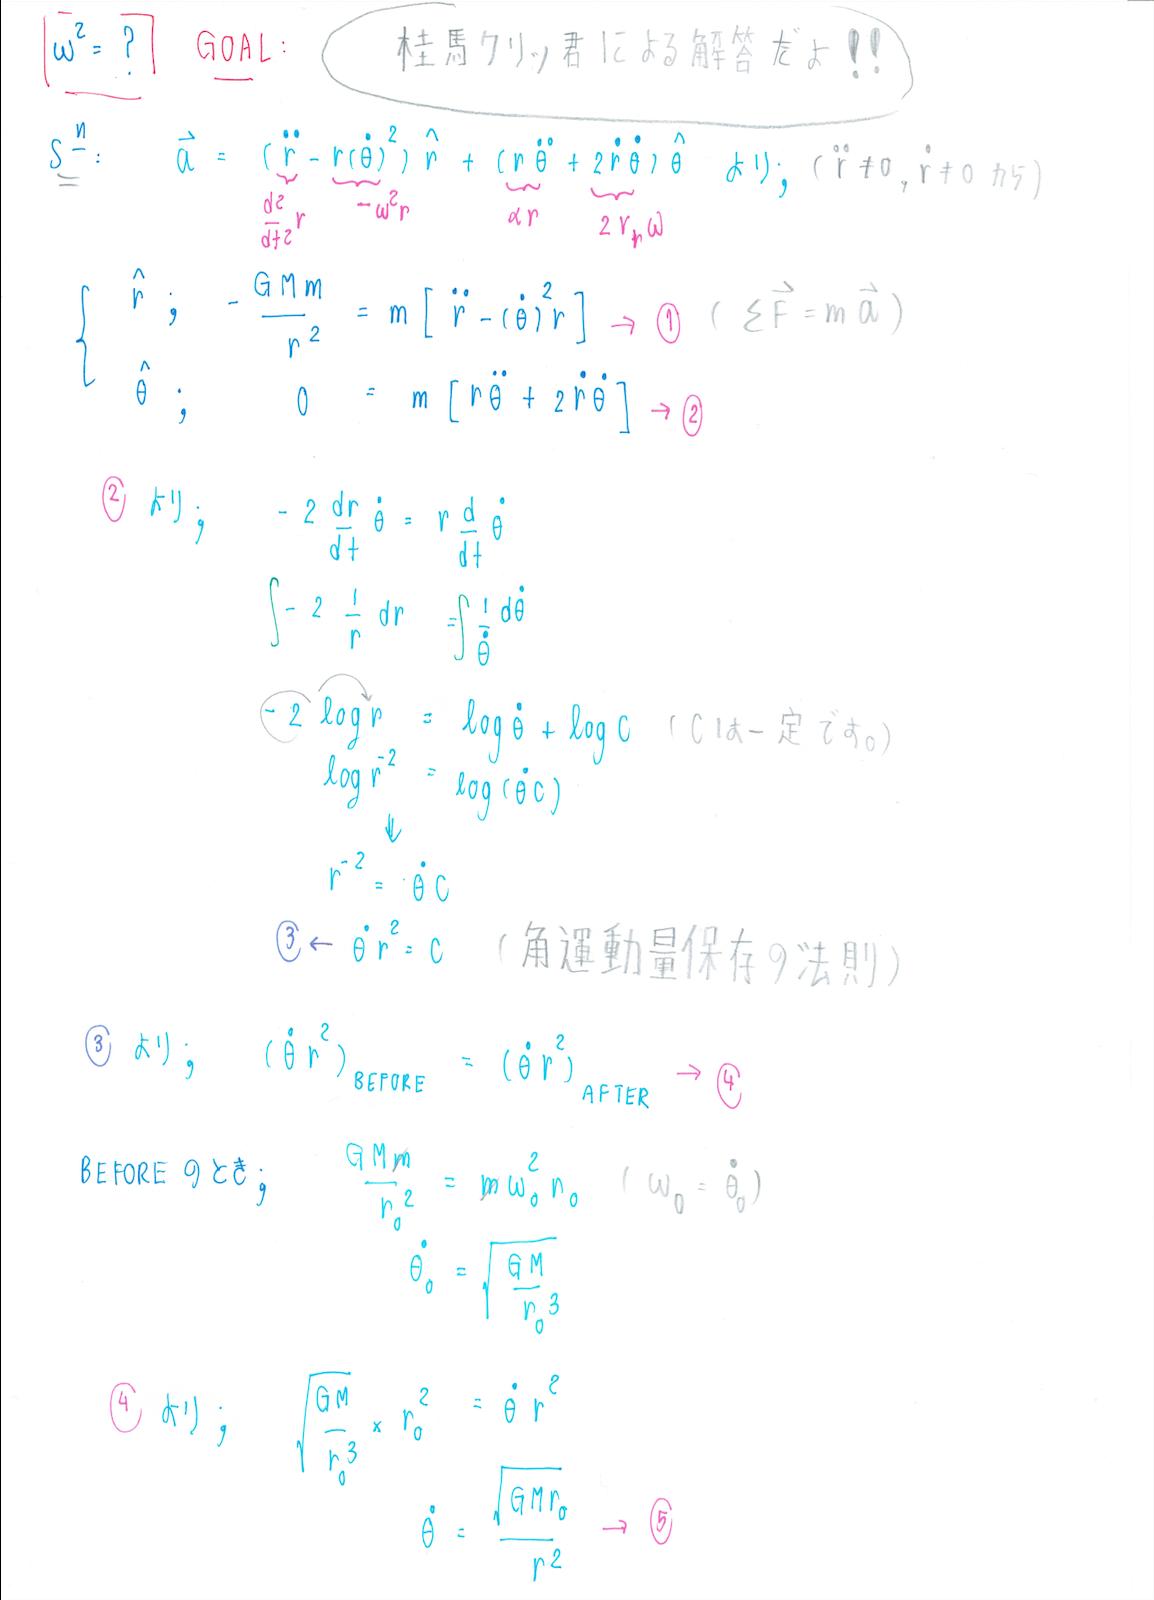 ω² = ? GOAL: 桂馬クリッ君による解答だよ!!
Sⁿ: a⃗ = (r̈ - r(θ̇)²) r̂ + (rθ̈ + 2ṙθ̇) θ̂ より; (r̈ ≠ 0, ṙ ≠ 0 から)
d²/dt² r -ω²r αr 2 r ω
r̂ ; - GMm/r² = m [ r̈ - (θ̇)² r ] → ① ( ΣF⃗ = m a⃗ )
θ̂ ; 0 = m [ rθ̈ + 2ṙθ̇ ] → ②
② より; - 2 dr/dt θ̇ = r d/dt θ̇
∫ - 2 1/r dr = ∫ 1/θ̇ dθ̇
-2 log r = log θ̇ + log C (Cは一定です。)
log r⁻² = log (θ̇C)
↓
r⁻² = θ̇ C
③ ← θ̇ r² = C (角運動量保存の法則)
③ より; (θ̇ r²) BEFORE = (θ̇ r²) AFTER → ④
BEFORE のとき; GMm/r₀² = mω₀² r₀ ( ω₀ = θ̇₀ )
θ̇₀ = √(GM/r₀³)
④ より; √(GM/r₀³) × r₀² = θ̇ r²
θ̇ = √(GMr₀)/r² → ⑤